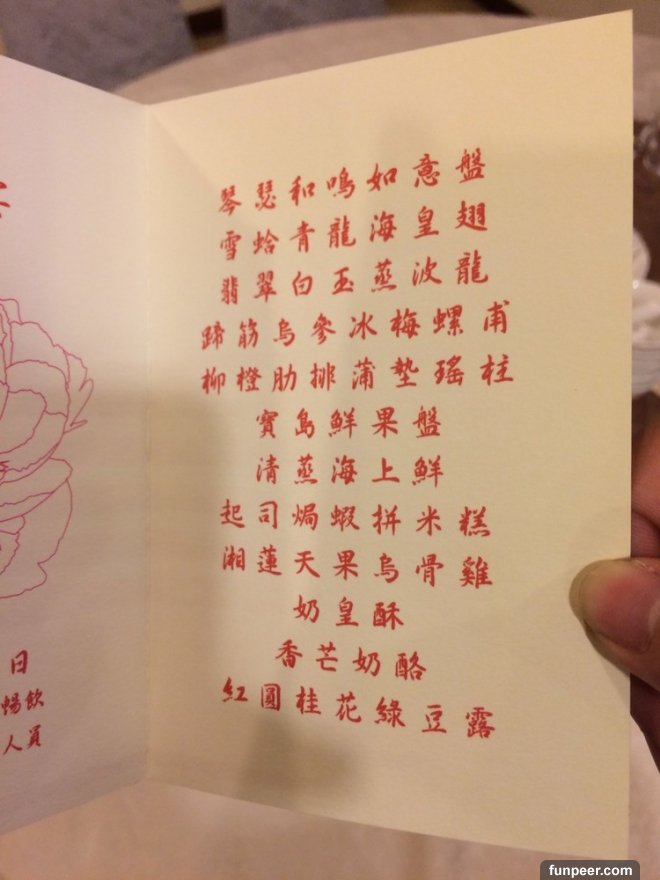 琴瑟和鳴如意盤
雪蛤青龍海皇翅
翡翠白玉蒸波龍
蹄筋烏參冰梅螺甫
柳橙肋排蒲墊瑤柱
寶島鮮果盤
清蒸海上鮮
起司焗蝦拼米糕
湘蓮天果烏骨雞
奶皇酥
香芒奶酪
紅圓桂花綠豆露
日
暢飲
人員
funpeer.com